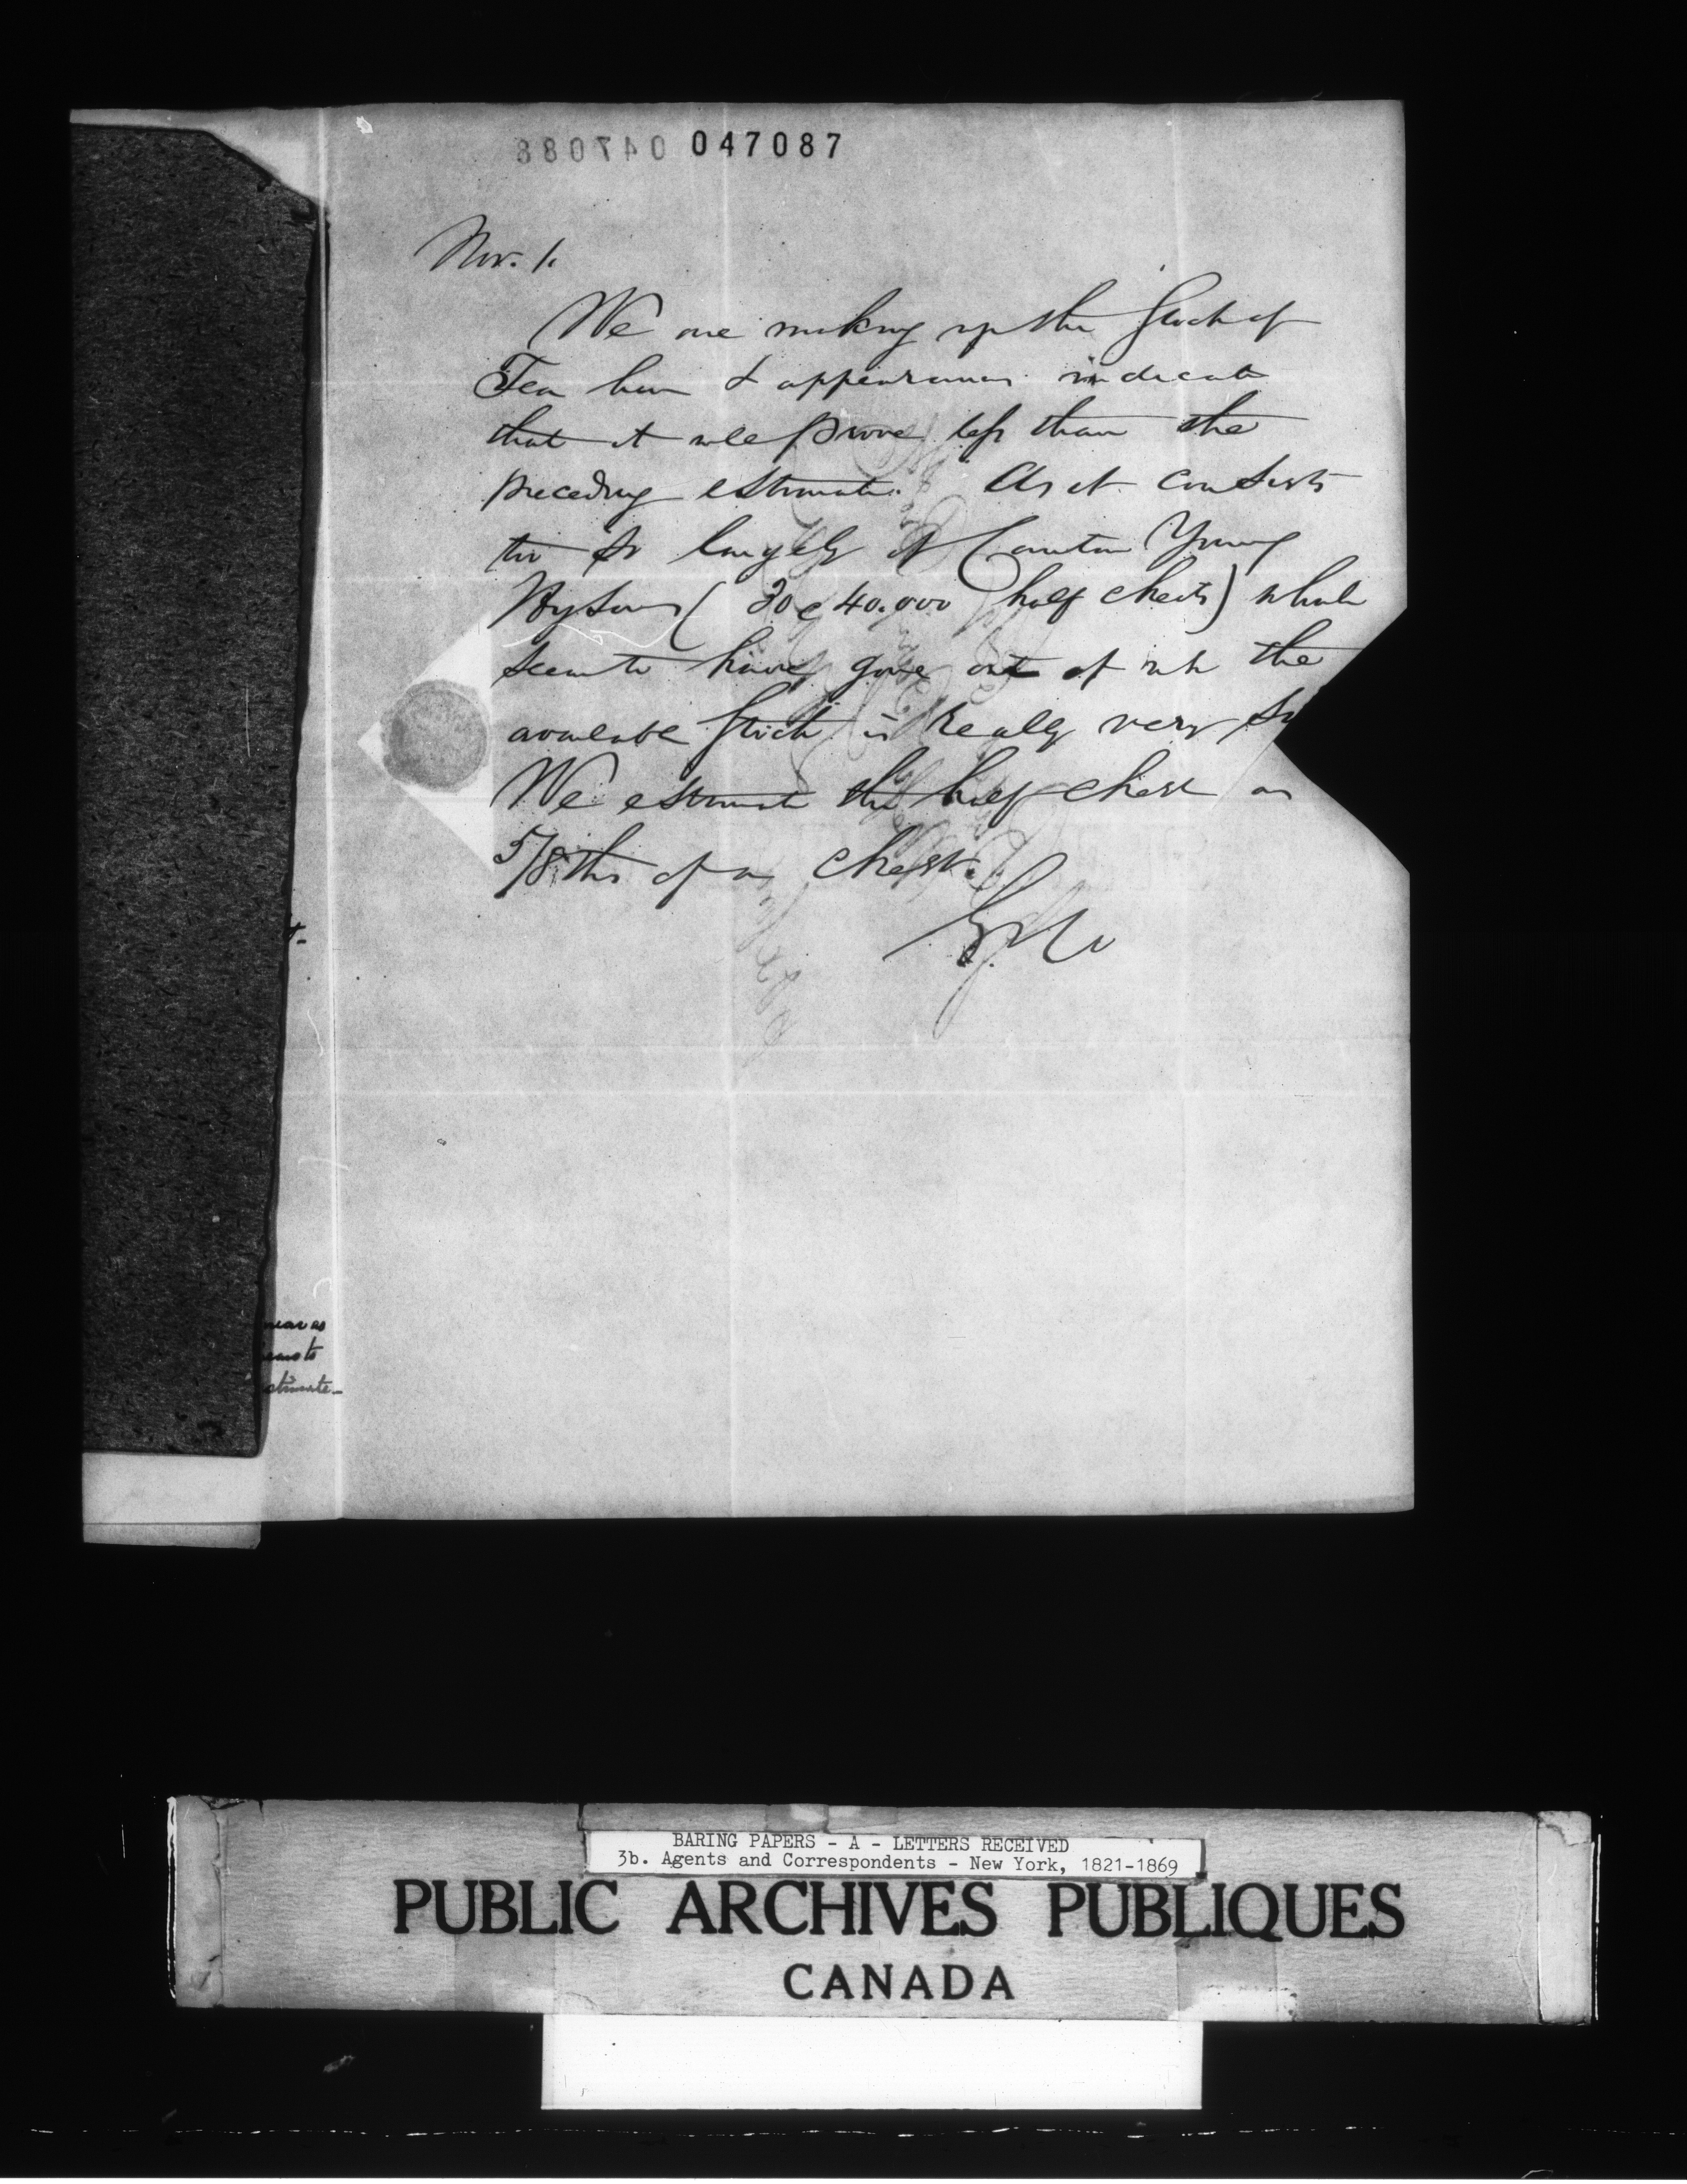 047088 047087
Nov. 1.
We are making up the stock of
Tea here & appearances indicate
that it will prove less than the
preceding estimate. As it consists
too so largely of Canton Young
Hysons ( 30 @ 40.000 half chests) which
seem to have gone out of use the
available stock is really very
We estimate the half chest as
5/8 ths of a chest.
near as
eems to
stimate
BARING PAPERS - A - LETTERS RECEIVED
3b. Agents and Correspondents - New York, 1821-1869
PUBLIC ARCHIVES PUBLIQUES
CANADA